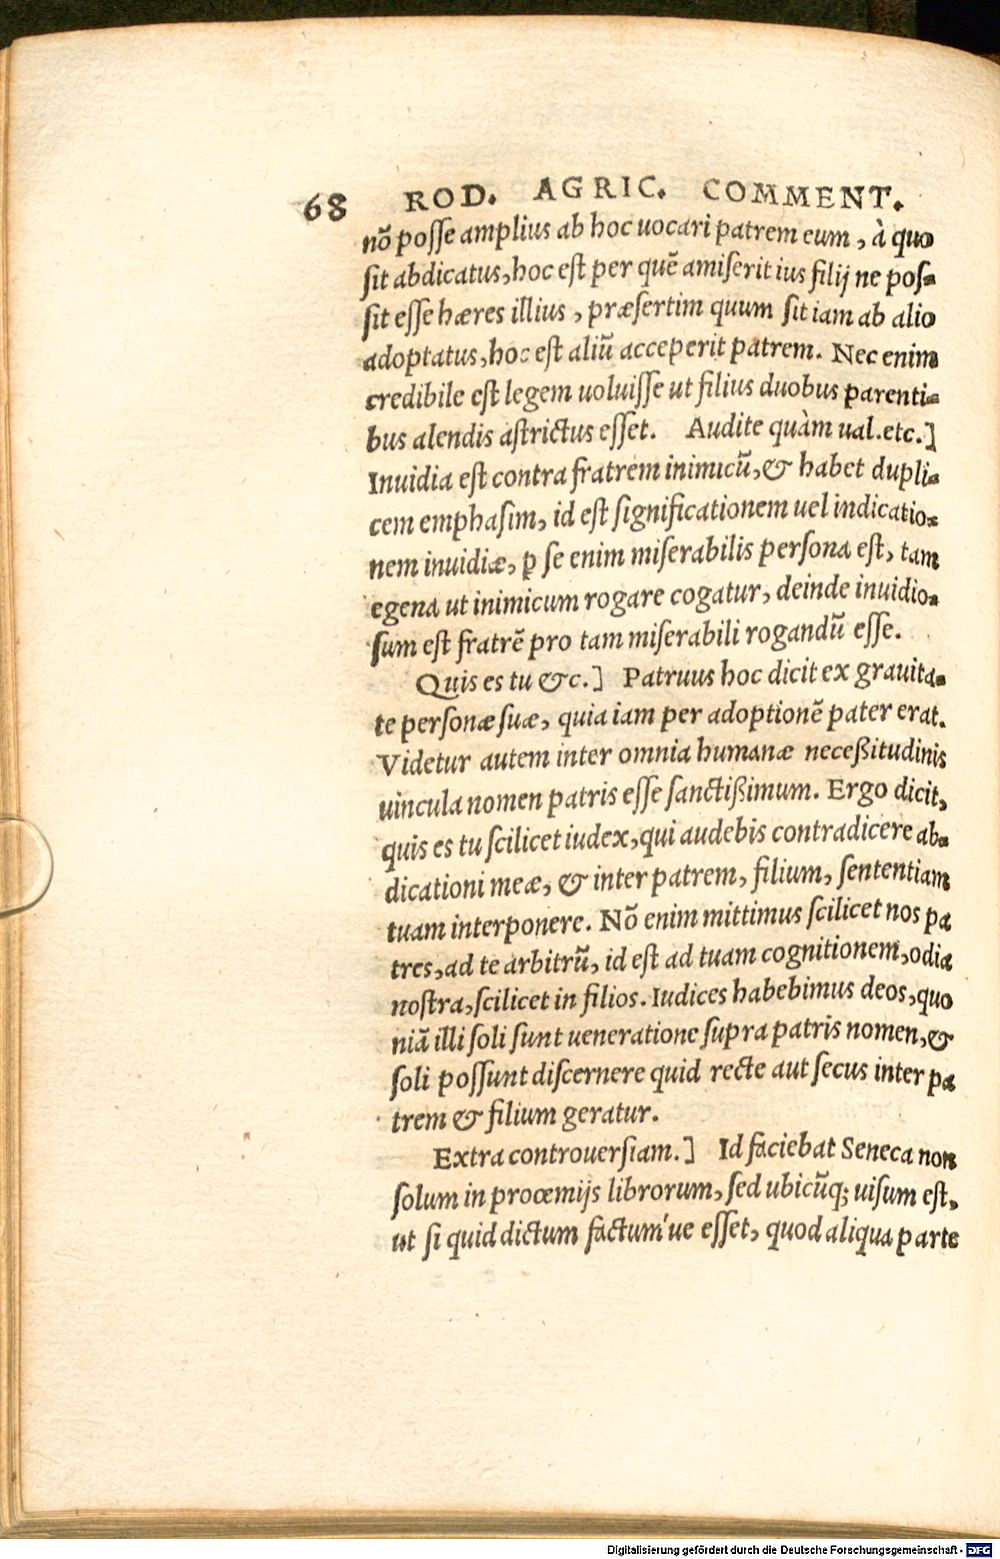 68 ROD. AGRIC. COMMENT.
nō poſſe amplius ab hoc uocari patrem eum, à quo
ſit abdicatus, hoc eſt per quē amiſerit ius filij ne poſ-
ſit eſſe hæres illius, præſertim quum ſit iam ab alio
adoptatus, hoc eſt aliū acceperit patrem. Nec enim
credibile eſt legem uoluiſſe ut filius duobus parenti-
bus alendis aſtrictus eſſet. Audite quàm ual.etc.]
Inuidia eſt contra fratrem inimicū, & habet dupli-
cem emphaſim, id eſt ſignificationem uel indicatio-
nem inuidiæ, ꝑ ſe enim miſerabilis perſona eſt, tam
egena ut inimicum rogare cogatur, deinde inuidio-
ſum eſt fratrē pro tam miſerabili rogandū eſſe.
Quis es tu &c.] Patruus hoc dicit ex grauita-
te perſonæ ſuæ, quia iam per adoptionē pater erat.
Videtur autem inter omnia humanæ neceßitudinis
uincula nomen patris eſſe ſanctißimum. Ergo dicit,
quis es tu ſcilicet iudex, qui audebis contradicere ab-
dicationi meæ, & inter patrem, filium, ſententiam
tuam interponere. Nō enim mittimus ſcilicet nos pa
tres, ad te arbitrū, id eſt ad tuam cognitionem, odia
noſtra, ſcilicet in filios. Iudices habebimus deos, quo
niā illi ſoli ſunt ueneratione ſupra patris nomen, &
ſoli poſſunt diſcernere quid recte aut ſecus inter pa
trem & filium geratur.
Extra controuerſiam.] Id faciebat Seneca non
ſolum in proœmijs librorum, ſed ubicūq; uiſum eſt,
ut ſi quid dictum factum'ue eſſet, quod aliqua parte
Digitalisierung gefördert durch die Deutsche Forschungsgemeinschaft - DFG